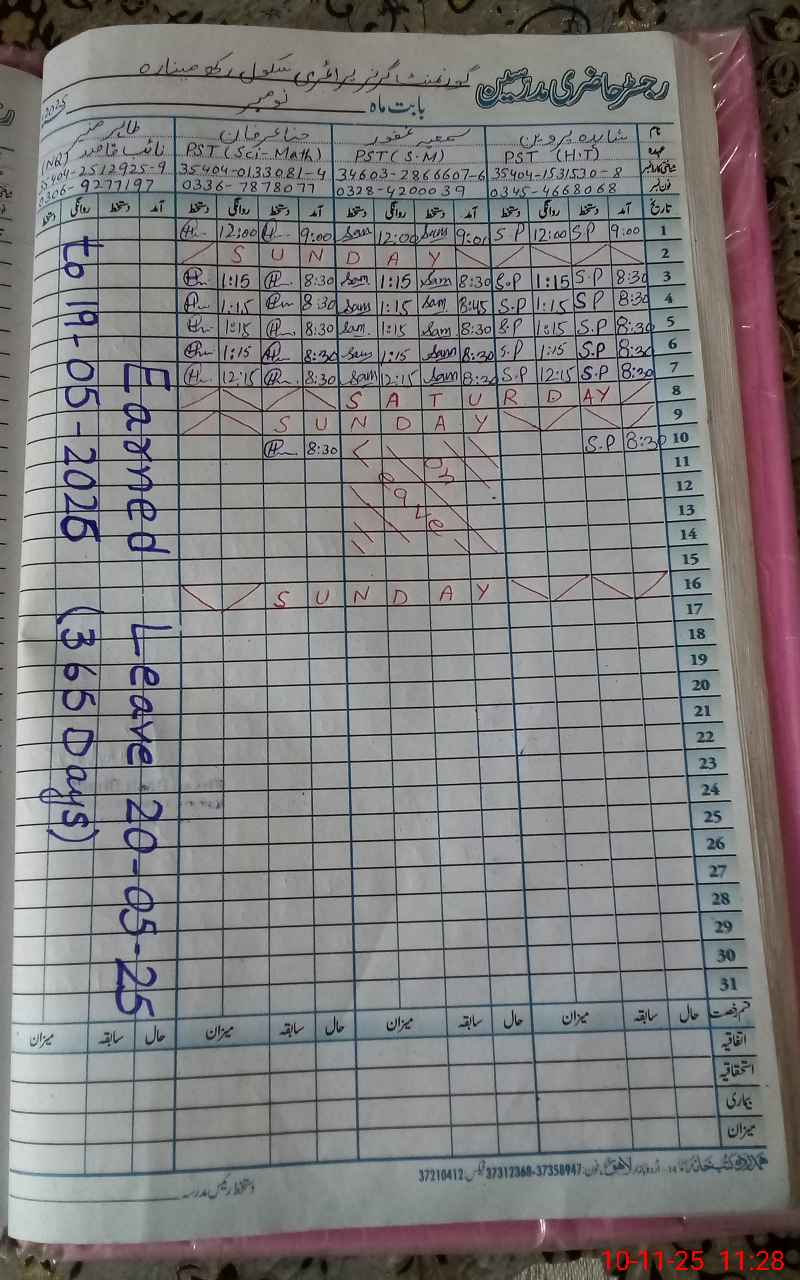 رجسٹر حاضری مدرسین گورنمنٹ گرلز پرائمری سکول رکھ مینارہ
بابت ماہ نومبر 2025
نام شاہدہ پروین سمعیہ غفور حنا عرفان طاہر
عہدہ PST (H.T) PST (S.M) PST (Sci-Math) نائب قاصد (NQ)
35404-1531530-8 34603-2866607-6 35404-0133081-4 35404-2512925-9
فون نمبر 0345-4668068 0328-4200039 0336-7878077 0306-9277197
تاریخ آمد دستخط روانگی دستخط آمد دستخط روانگی دستخط آمد دستخط روانگی دستخط آمد دستخط روانگی دستخط
1 9:00 S.P 12:00 S.P 9:00 Sam 12:00 Sam 9:00 H 12:00 H
2 SUNDAY
3 8:30 S.P 1:15 S.P 8:30 Sam 1:15 Sam 8:30 H 1:15 H
4 8:30 S.P 1:15 S.P 8:45 Sam 1:15 Sam 8:30 H 1:15 H
5 8:30 S.P 1:15 S.P 8:30 Sam 1:15 Sam 8:30 H 1:15 H
6 8:30 S.P 1:15 S.P 8:30 Sam 1:15 Sam 8:30 H 1:15 H
7 8:30 S.P 12:15 S.P 8:30 Sam 12:15 Sam 8:30 H 12:15 H
8 SATURDAY
9 SUNDAY
10 8:30 S.P 8:30 H
11
12
13
14
15
16 SUNDAY
17
18
19
20
21
22
23
24
25
26
27
28
29
30
31
Earned Leave 20-05-25
to 19-05-2026 (365 Days)
قسم رخصت حال سابقہ میزان حال سابقہ میزان حال سابقہ میزان حال سابقہ میزان
اتفاقیہ
استحقاقیہ
بیماری
میزان
لاہور فون: 37358947-37312368 فیکس: 37210412
دستخط رئیس مدرسہ
10-11-25 11:28